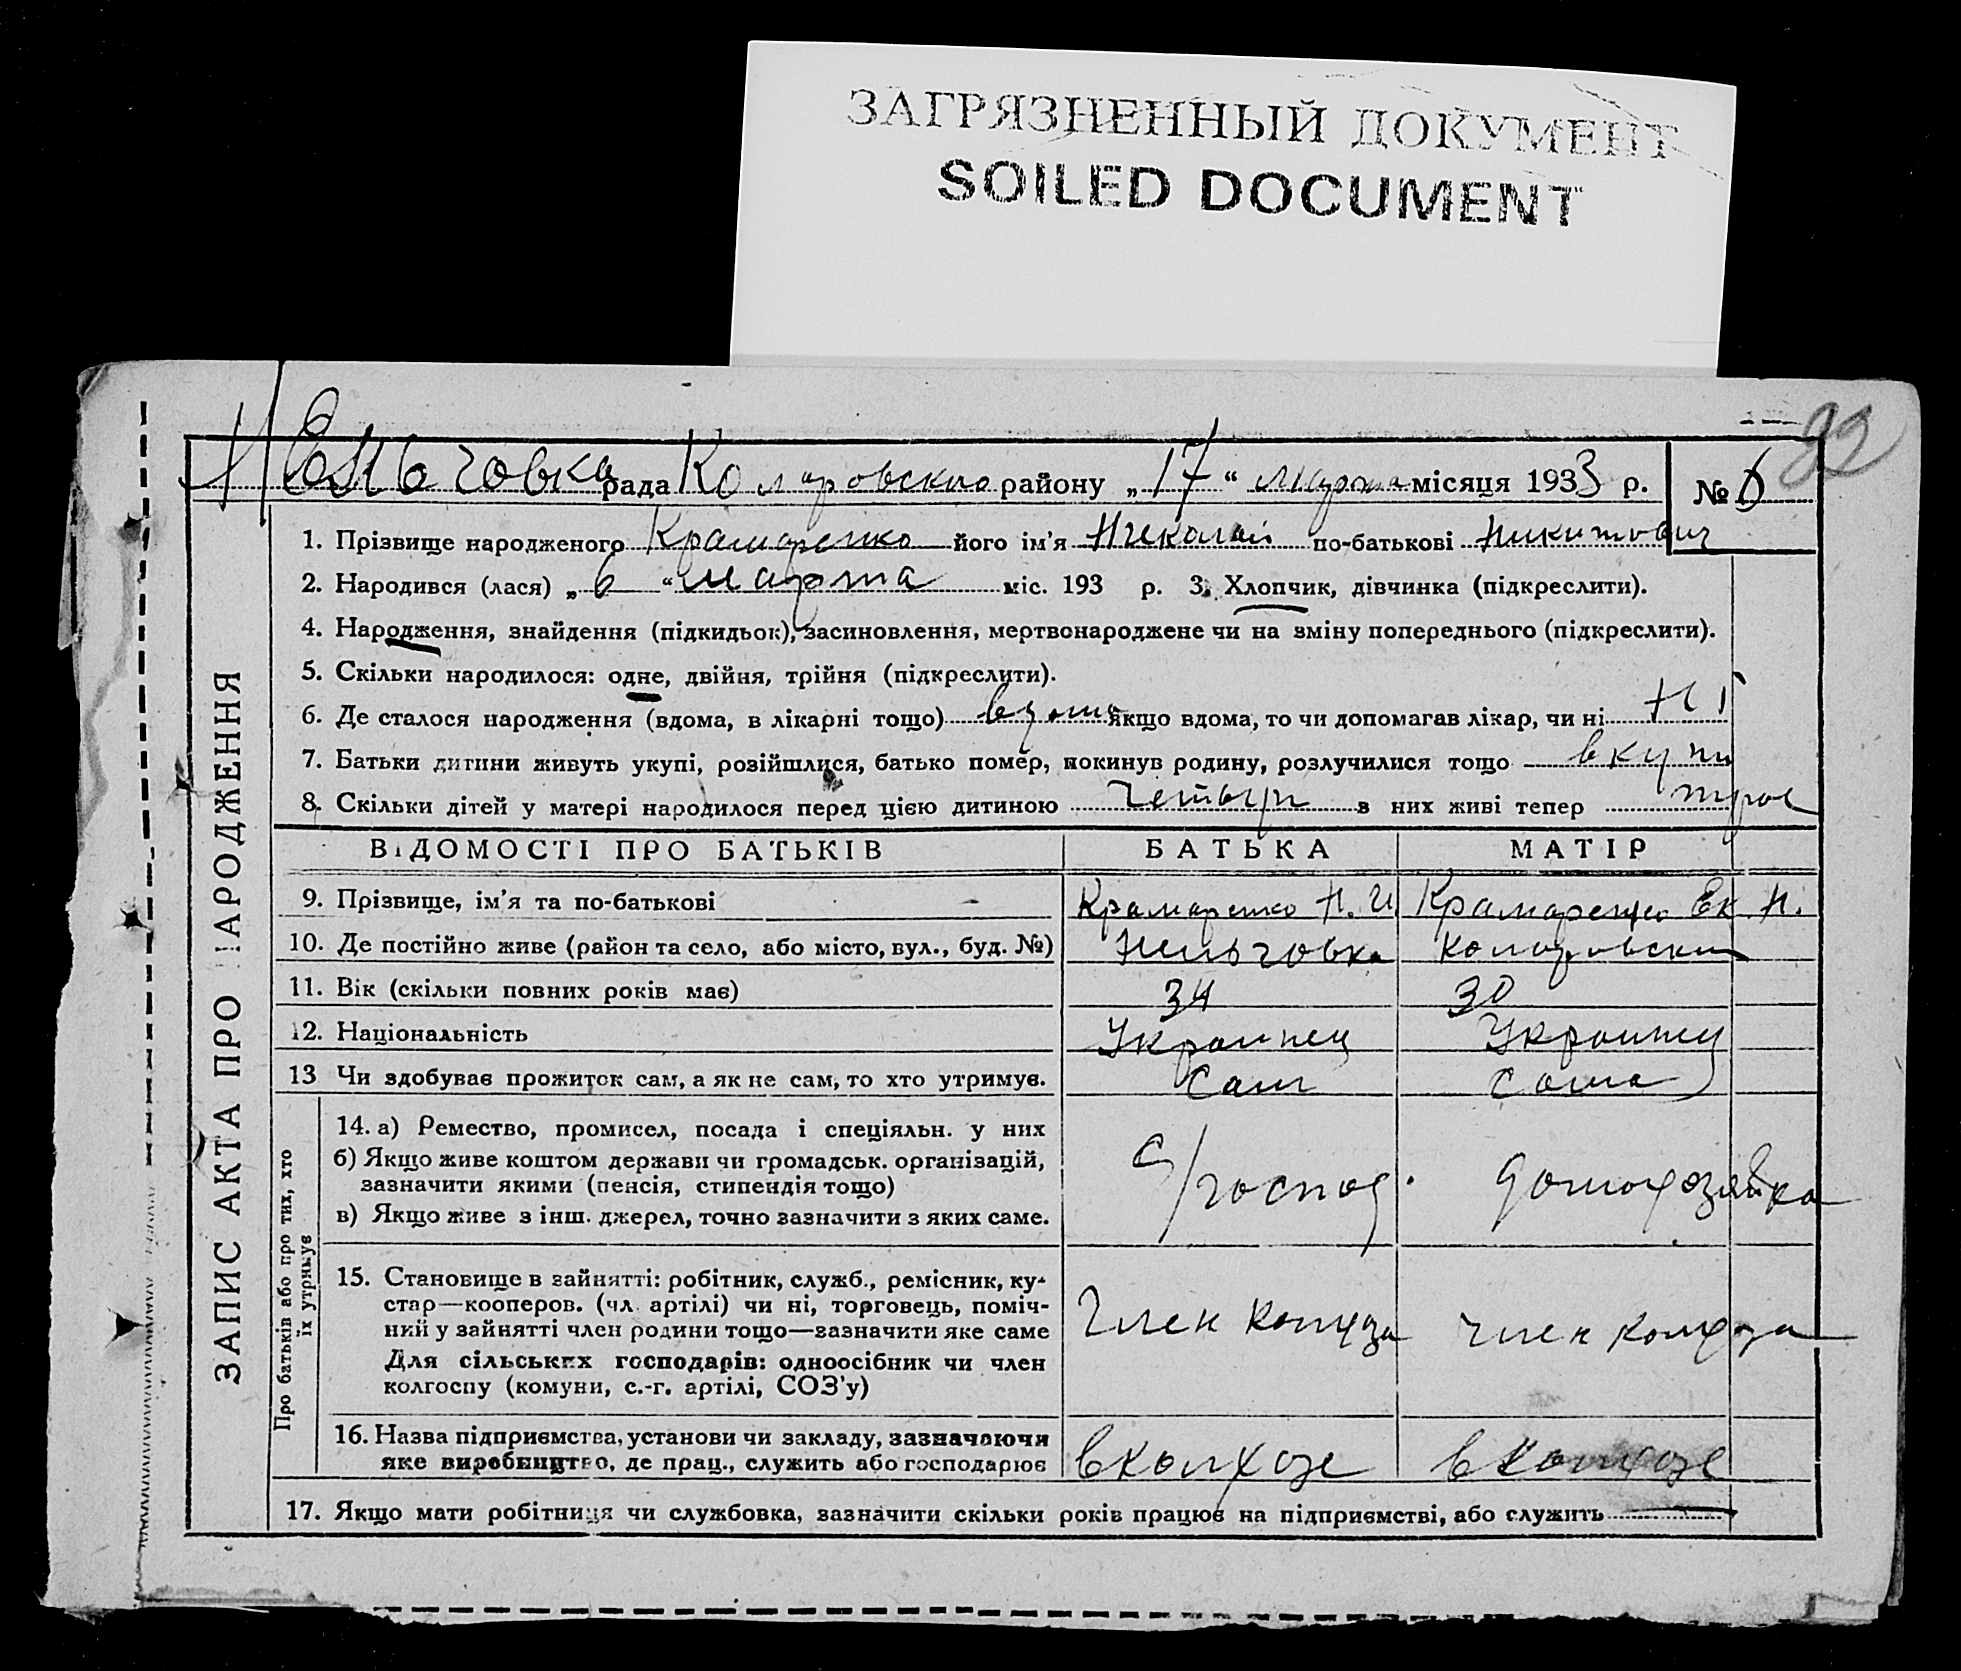 ЗАГРЯЗНЕННЫЙ ДОКУМЕНТ
SOILED DOCUMENT
92
Нельговка рада Коларовского району „17“ марта місяця 1933 р. № 6
ЗАПИС АКТА ПРО НАРОДЖЕННЯ
1. Прізвище народженого Крамаренко його ім'я Николай по-батькові Никитович
2. Народився (лася) „6“ марта міс. 193 р. 3. Хлопчик, дівчинка (підкреслити).
4. Народження, знайдення (підкидьок), засиновлення, мертвонароджене чи на зміну попереднього (підкреслити).
5. Скільки народилося: одне, двійня, трійня (підкреслити).
6. Де сталося народження (вдома, в лікарні тощо) вдома якщо вдома, то чи допомагав лікар, чи ні ні
7. Батьки дитини живуть укупі, розійшлися, батько помер, покинув родину, розлучилися тощо вкупи
8. Скільки дітей у матері народилося перед цією дитиною четыри в них живі тепер трое
ВІДОМОСТІ ПРО БАТЬКІВ БАТЬКА МАТІР
9. Прізвище, ім'я та по-батькові Крамаренко Н. И Крамаренко Ек. Н.
10. Де постійно живе (район та село, або місто, вул., буд. №) Нельговка Коларовский
11. Вік (скільки повних років має) 34 30
12. Національність Украинец Украинец
13 Чи здобуває прожиток сам, а як не сам, то хто утримує. Сам Сама
Про батьків або про тих, хто їх утримує
14. а) Ремество, промисел, посада і спеціяльн. у них С/господ. домохозяйка
б) Якщо живе коштом держави чи громадськ. організацій,
зазначити якими (пенсія, стипендія тощо)
в) Якщо живе з інш. джерел, точно зазначити з яких саме.
15. Становище в зайнятті: робітник, служб., ремісник, ку-
стар—кооперов. (чл. артілі) чи ні, торговець, поміч-
ний у зайнятті член родини тощо—зазначити яке саме
Для сільських господарів: одноосібник чи член
колгоспу (комуни, с.-г. артілі, СОЗ'у)
Член колхоза член колхоза
16. Назва підприємства, установи чи закладу, зазначаючи
яке виробництво, де прац., служить або господарює в колхозе в колхозе
17. Якщо мати робітниця чи службовка, зазначити скільки років працює на підприємстві, або служить —